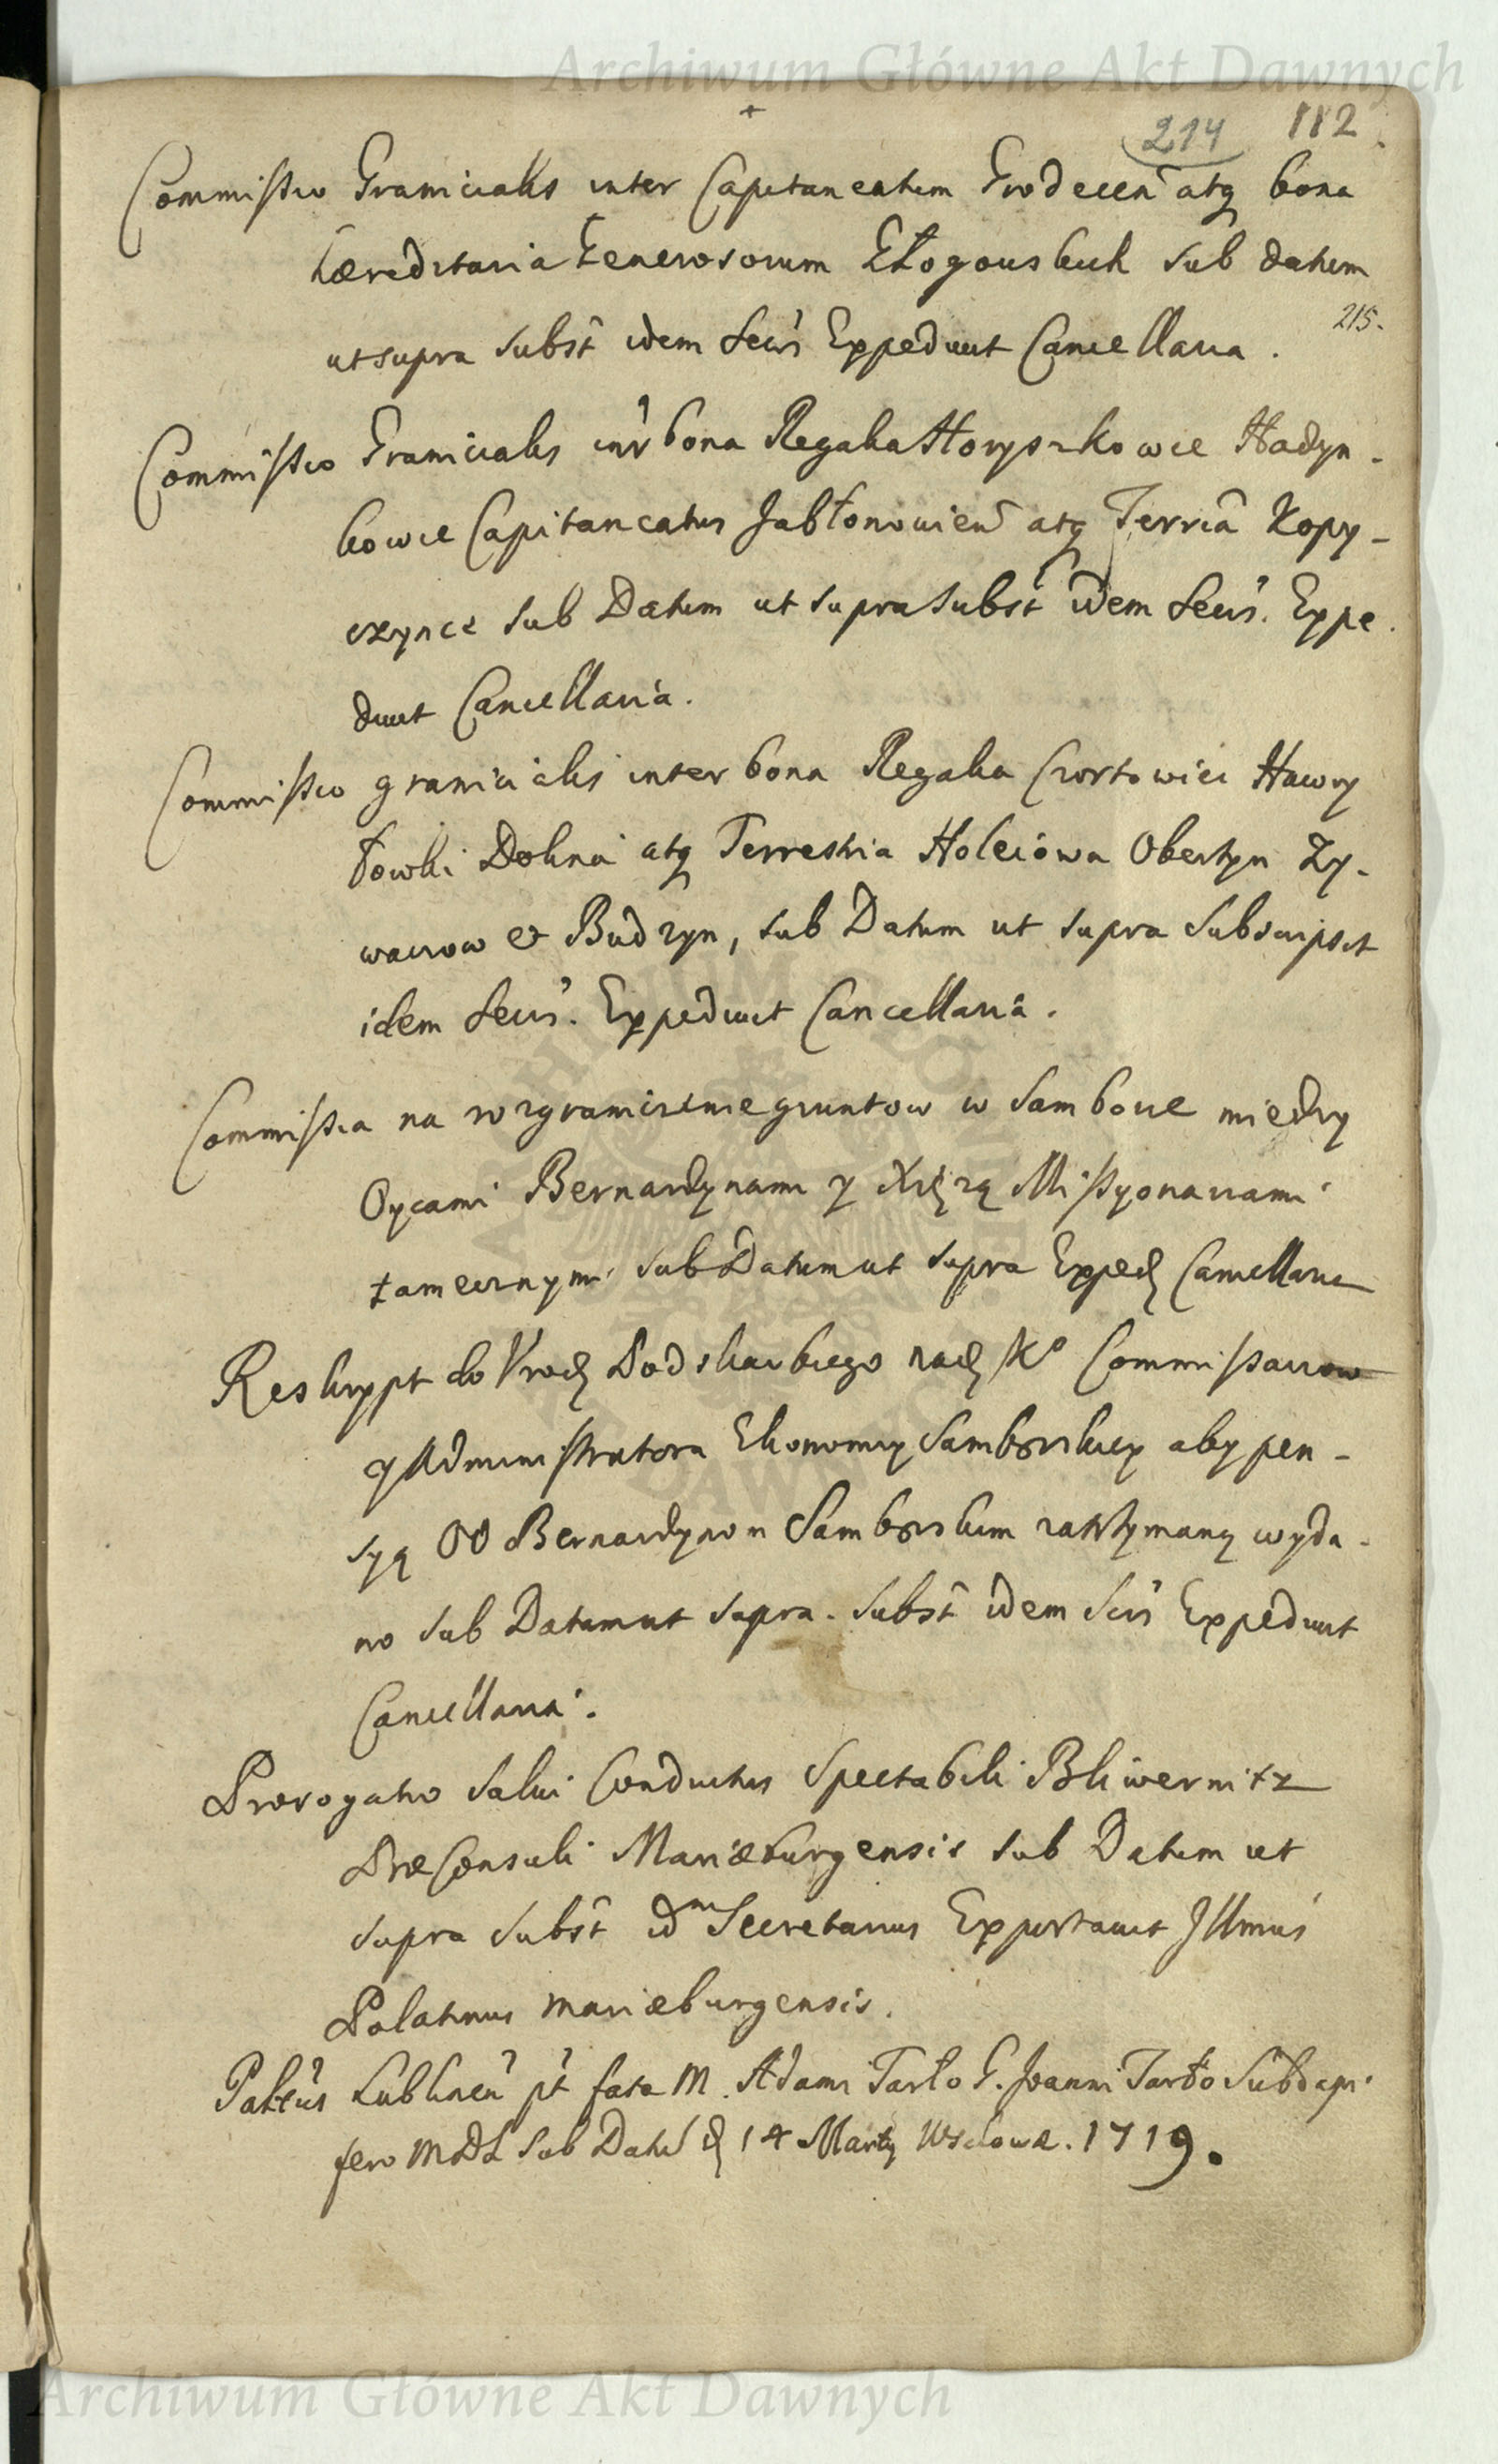 Archiwum Główne Akt Dawnych
214 112
Commissio Granicialis inter Capitaneatum Grodecen atq bona
hæreditaria Generosorum Głogowskich sub datum
ut supra subst idem Secrs Expedivit Cancellaria.
215.
Commissio Granicialis intr bona Regalia Horyszkowce Hadyn-
kowce Capitaneatus Jabłonovien atq Terria Kopy-
czynce sub Datum ut supra subst idem Secrs. Expe
divit Cancellaria.
Commissio granicialis inter bona Regalia Czortowiec Hawry
łowki Dolina atq Terrestria Holeiowa Obertyn Zy-
waczow et Budzyn, sub Datum ut supra Subscripsit
idem Secrs. Expedivit Cancellaria.
Commissia na rozgraniczenie gruntow w Samborze miedzy
Oycami Bernardynami y Xięzą Missyonarzami
tamecznymi sub Datum ut supra Exped Cancellaria
Reskrypt do Urod Podskarbiego nad Ko Commissarzow
y Administratora Ekonomiy Samborskiey aby pen-
syą OO Bernardynom Samborskim zatrzymaną wyda-
no sub Datum ut supra. Subst idem Secrs Expedivit
Cancellaria.
Prorogatio Salvi Conductus Spectabili Bliwernitz
PræConsuli Mariæburgensis sub Datum ut
supra subst idm Secretarius Exportavit Illmus
Palatinus mariæburgensis.
Palttus Lublinen pt fata M. Adami Tarło G. Joanni Tarło Subdapi-
fero MDL sub Datu d 14 Marty Wschowæ. 1719.
Archiwum Główne Akt Dawnych